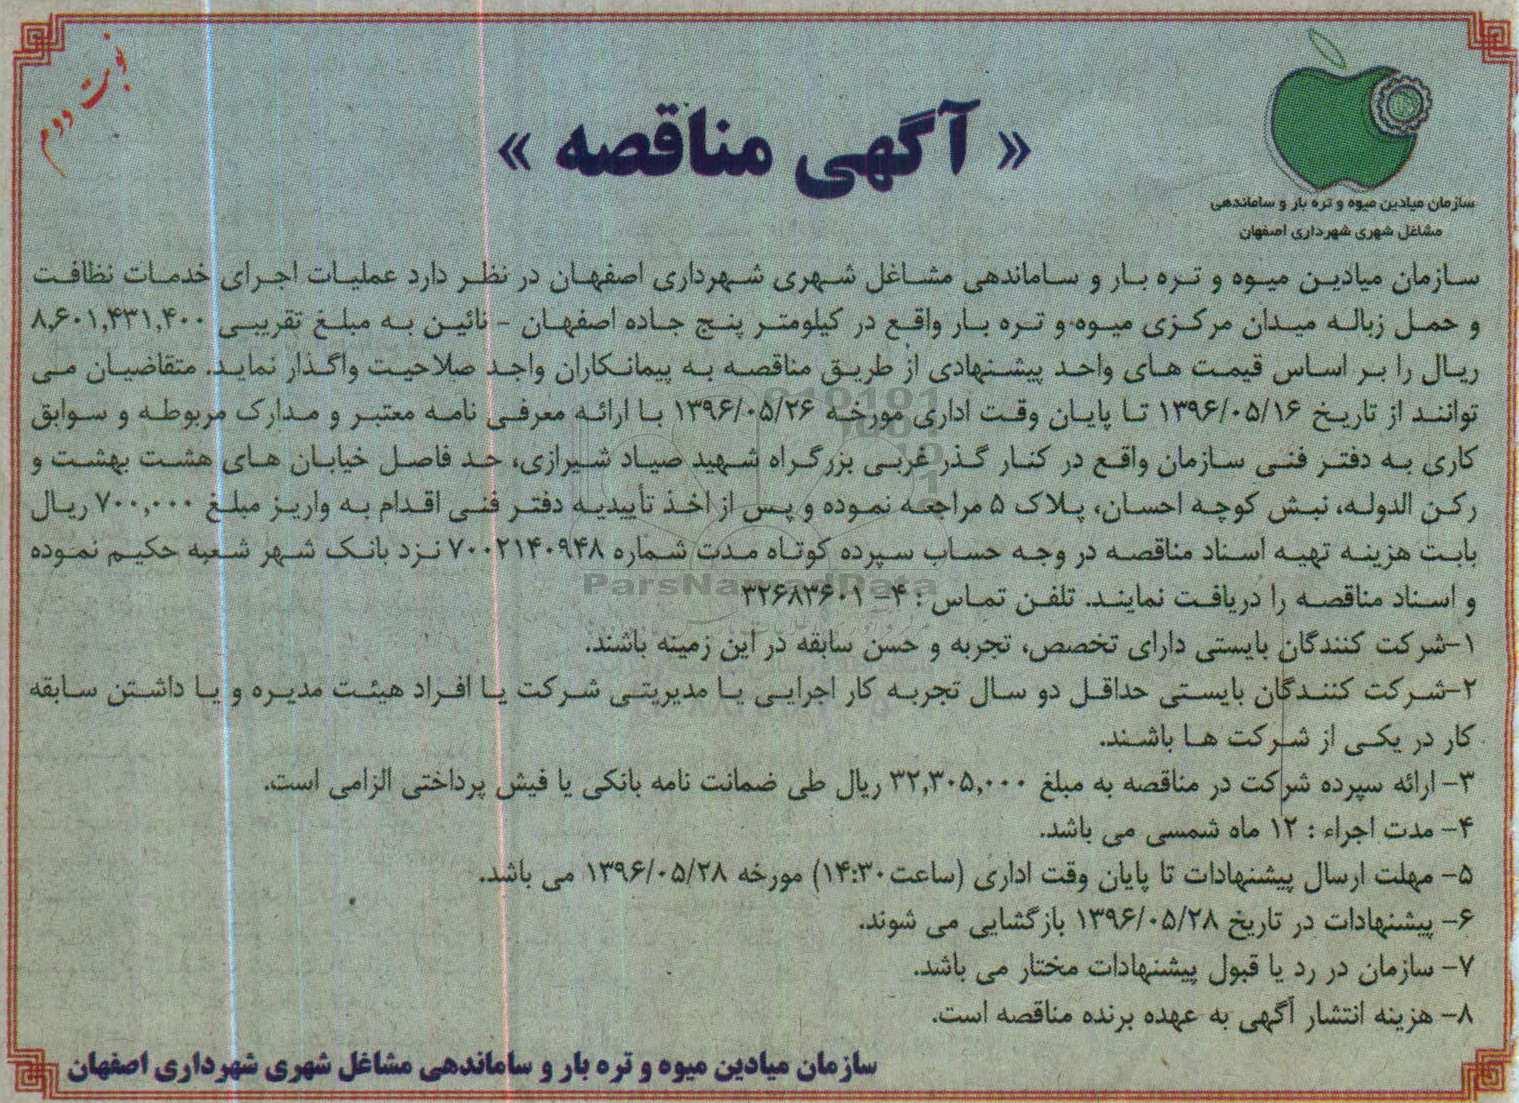 نوبت دوم
« آگهی مناقصه »
سازمان میادین میوه و تره بار و ساماندهی
مشاغل شهری شهرداری اصفهان
سازمان میادین میوه و تره بار و ساماندهی مشاغل شهری شهرداری اصفهان در نظر دارد عملیات اجرای خدمات نظافت
و حمل زباله میدان مرکزی میوه و تره بار واقع در کیلومتر پنج جاده اصفهان - نائین به مبلغ تقریبی ۸,۶۰۱,۴۳۱,۴۰۰
ریال را بر اساس قیمت های واحد پیشنهادی از طریق مناقصه به پیمانکاران واجد صلاحیت واگذار نماید. متقاضیان می
توانند از تاریخ ۱۳۹۶/۰۵/۱۶ تا پایان وقت اداری مورخه ۱۳۹۶/۰۵/۲۶ با ارائه معرفی نامه معتبر و مدارک مربوطه و سوابق
کاری به دفتر فنی سازمان واقع در کنار گذر غربی بزرگراه شهید صیاد شیرازی، حد فاصل خیابان های هشت بهشت و
رکن الدوله، نبش کوچه احسان، پلاک ۵ مراجعه نموده و پس از اخذ تأییدیه دفتر فنی اقدام به واریز مبلغ ۷۰۰,۰۰۰ ریال
بابت هزینه تهیه اسناد مناقصه در وجه حساب سپرده کوتاه مدت شماره ۷۰۰۲۱۴۰۹۴۸ نزد بانک شهر شعبه حکیم نموده
و اسناد مناقصه را دریافت نمایند. تلفن تماس : ۴- ۳۲۶۸۳۶۰۱
ParsNamadData
۱-شرکت کنندگان بایستی دارای تخصص، تجربه و حسن سابقه در این زمینه باشند.
۲-شرکت کنندگان بایستی حداقل دو سال تجربه کار اجرایی یا مدیریتی شرکت یا افراد هیئت مدیره و یا داشتن سابقه
کار در یکی از شرکت ها باشند.
۳- ارائه سپرده شرکت در مناقصه به مبلغ ۳۲,۳۰۵,۰۰۰ ریال طی ضمانت نامه بانکی یا فیش پرداختی الزامی است.
۴- مدت اجراء : ۱۲ ماه شمسی می باشد.
۵- مهلت ارسال پیشنهادات تا پایان وقت اداری (ساعت۱۴:۳۰) مورخه ۱۳۹۶/۰۵/۲۸ می باشد.
۶- پیشنهادات در تاریخ ۱۳۹۶/۰۵/۲۸ بازگشایی می شوند.
۷- سازمان در رد یا قبول پیشنهادات مختار می باشد.
۸- هزینه انتشار آگهی به عهده برنده مناقصه است.
سازمان میادین میوه و تره بار و ساماندهی مشاغل شهری شهرداری اصفهان